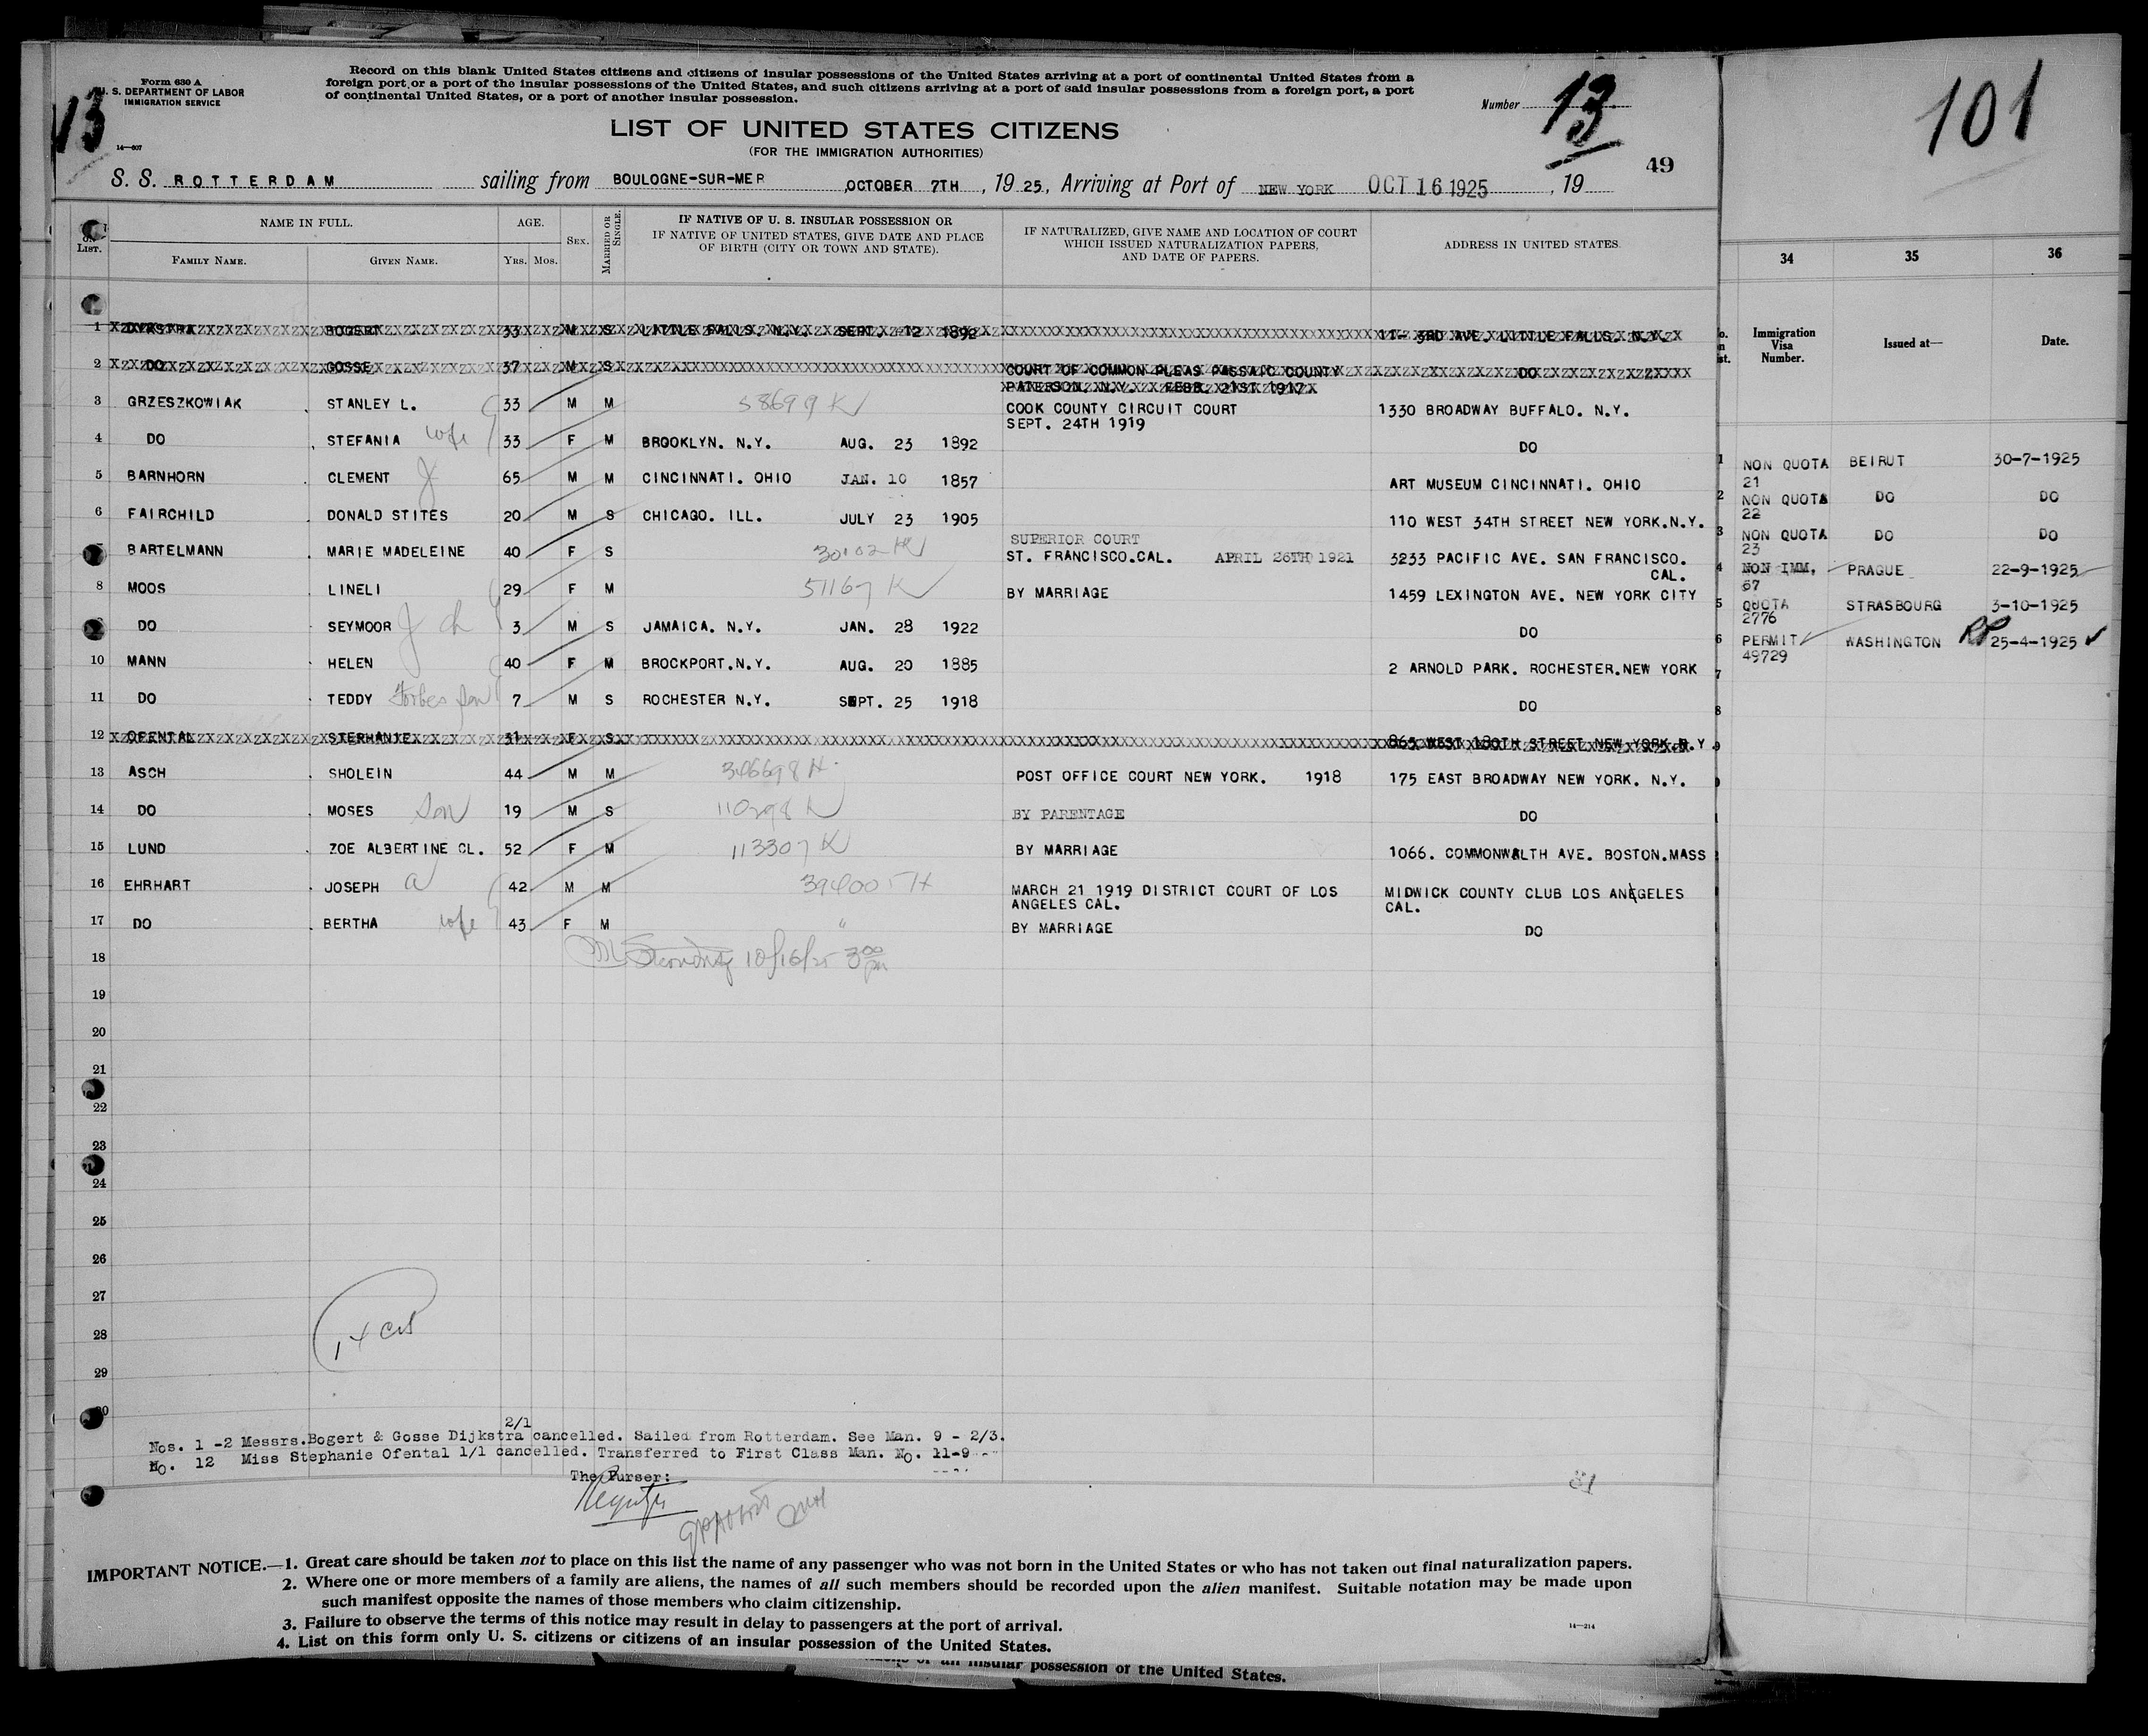 Form 630 A
U. S. DEPARTMENT OF LABOR
IMMIGRATION SERVICE
14—607
13
Record on this blank United States citizens and citizens of insular possessions of the United States arriving at a port of continental United States from a
foreign port or a port of the insular possessions of the United States, and such citizens arriving at a port of said insular possessions from a foreign port, a port
of continental United States, or a port of another insular possession.
Number 13
LIST OF UNITED STATES CITIZENS
(FOR THE IMMIGRATION AUTHORITIES)
49
S. S. ROTTERDAM sailing from BOULOGNE-SUR-MER, OCTOBER 7TH, 1925, Arriving at Port of NEW YORK OCT 16 1925, 19
LIST. NAME IN FULL. AGE. SEX. MARRIED OR SINGLE. IF NATIVE OF U. S. INSULAR POSSESSION OR IF NATIVE OF UNITED STATES, GIVE DATE AND PLACE OF BIRTH (CITY OR TOWN AND STATE). IF NATURALIZED, GIVE NAME AND LOCATION OF COURT WHICH ISSUED NATURALIZATION PAPERS, AND DATE OF PAPERS. ADDRESS IN UNITED STATES.
FAMILY NAME. GIVEN NAME. YRS. MOS.
1 BOGERT 33 M S LITTLE FALLS. N.Y. SEPT. 12 1892 17- 3RD AVE. LITTLE FALLS. N.Y.
2 DO GOSSE 37 M S COURT OF COMMON PLEAS PASSAIC COUNTY DO
PATERSON. N.Y. FEBR. 21ST 1917
3 GRZESZKOWIAK STANLEY L. 33 M M 58699 K COOK COUNTY CIRCUIT COURT 1330 BROADWAY BUFFALO. N.Y.
SEPT. 24TH 1919
4 DO STEFANIA wife 33 F M BROOKLYN. N.Y. AUG. 23 1892 DO
5 BARNHORN CLEMENT J 65 M M CINCINNATI. OHIO JAN. 10 1857 ART MUSEUM CINCINNATI. OHIO
6 FAIRCHILD DONALD STITES 20 M S CHICAGO. ILL. JULY 23 1905 110 WEST 34TH STREET NEW YORK.N.Y.
SUPERIOR COURT
BARTELMANN MARIE MADELEINE 40 F S ST. FRANCISCO.CAL. APRIL 26TH 1921 3233 PACIFIC AVE. SAN FRANCISCO.
CAL.
8 MOOS LINELI 29 F M 51167 K BY MARRIAGE 1459 LEXINGTON AVE. NEW YORK CITY
DO SEYMOOR J ch 3 M S JAMAICA. N.Y. JAN. 28 1922 DO
10 MANN HELEN 40 F M BROCKPORT.N.Y. AUG. 20 1885 2 ARNOLD PARK. ROCHESTER.NEW YORK
11 DO TEDDY Forbes son 7 M S ROCHESTER N.Y. SEPT. 25 1918 DO
12 OFENTAL STEPHANIE 31 F S 865 WEST 180TH STREET NEW YORK.N.Y
13 ASCH SHOLEIN 44 M M 346698 H POST OFFICE COURT NEW YORK. 1918 175 EAST BROADWAY NEW YORK. N.Y.
14 DO MOSES son 19 M S 110298 K BY PARENTAGE DO
15 LUND ZOE ALBERTINE CL. 52 F M 113307 K BY MARRIAGE 1066. COMMONWALTH AVE. BOSTON.MASS
16 EHRHART JOSEPH a 42 M M MARCH 21 1919 DISTRICT COURT OF LOS MIDWICK COUNTY CLUB LOS ANGELES
ANGELES CAL. CAL.
17 DO BERTHA wife 43 F M " BY MARRIAGE DO
18 10/16/25 3 00 pm
19
20
21
22
23
24
25
26
27
28
29
2/1
Nos. 1 -2 Messrs.Bogert & Gosse Dijkstra cancelled. Sailed from Rotterdam. See Man. 9 - 2/3.
No. 12 Miss Stephanie Ofental 1/1 cancelled. Transferred to First Class Man. No. 11-9
The Purser:
81
IMPORTANT NOTICE.—1. Great care should be taken not to place on this list the name of any passenger who was not born in the United States or who has not taken out final naturalization papers.
2. Where one or more members of a family are aliens, the names of all such members should be recorded upon the alien manifest. Suitable notation may be made upon
such manifest opposite the names of those members who claim citizenship.
3. Failure to observe the terms of this notice may result in delay to passengers at the port of arrival.
4. List on this form only U. S. citizens or citizens of an insular possession of the United States.
14—214
of an insular possession of the United States.
101
34 35 36
Immigration Visa Number. Issued at— Date.
1 NON QUOTA BEIRUT 30-7-1925
21
2 NON QUOTA DO DO
22
3 NON QUOTA DO DO
23
4 NON IMM. PRAGUE 22-9-1925
67
5 QUOTA STRASBOURG 3-10-1925
2776
6 PERMIT WASHINGTON RP 25-4-1925
49729
7
8